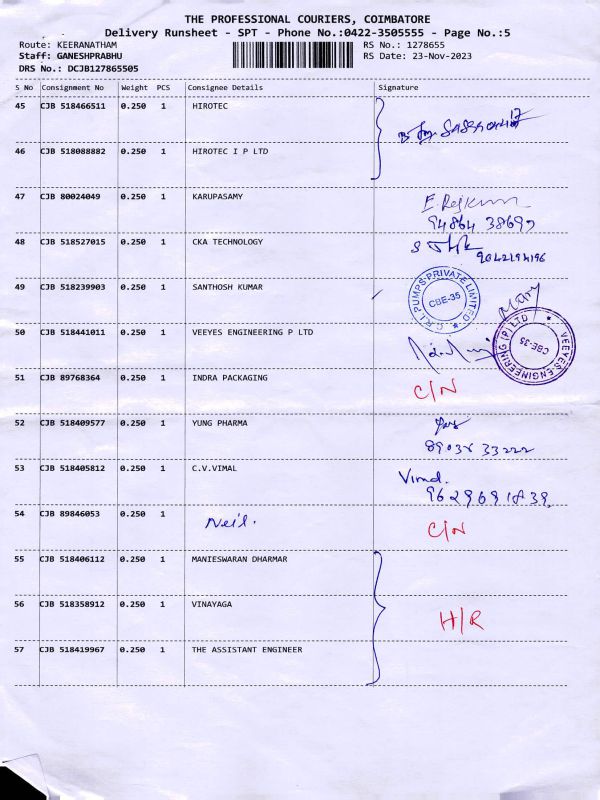 THE PROFESSIONAL COURIERS, COIMBATORE
Delivery Runsheet - SPT - Phone No.:0422-3505555 - Page No.:5
Route: KEERANATHAM RS No.: 1278655
Staff: GANESHPRABHU RS Date: 23-Nov-2023
DRS No.: DCJB127865505
S No Consignment No Weight PCS Consignee Details Signature
45 CJB 518466511 0.250 1 HIROTEC
46 CJB 518088882 0.250 1 HIROTEC I P LTD
47 CJB 80024049 0.250 1 KARUPASAMY E. Rajkumar
94864 38697
48 CJB 518527015 0.250 1 CKA TECHNOLOGY
9042194196
49 CJB 518239903 0.250 1 SANTHOSH KUMAR
C.R.I. PUMPS PRIVATE LIMITED
CBE-35
50 CJB 518441011 0.250 1 VEEYES ENGINEERING P LTD
VEEYES ENGINEERING (P) LTD
CBE-35
51 CJB 89768364 0.250 1 INDRA PACKAGING C/N
52 CJB 518409577 0.250 1 YUNG PHARMA
89038 33222
53 CJB 518405812 0.250 1 C.V.VIMAL Vimal.
9629691839
54 CJB 89846053 0.250 1 Neil. C/N
55 CJB 518406112 0.250 1 MANIESWARAN DHARMAR
56 CJB 518358912 0.250 1 VINAYAGA H/R
57 CJB 518419967 0.250 1 THE ASSISTANT ENGINEER